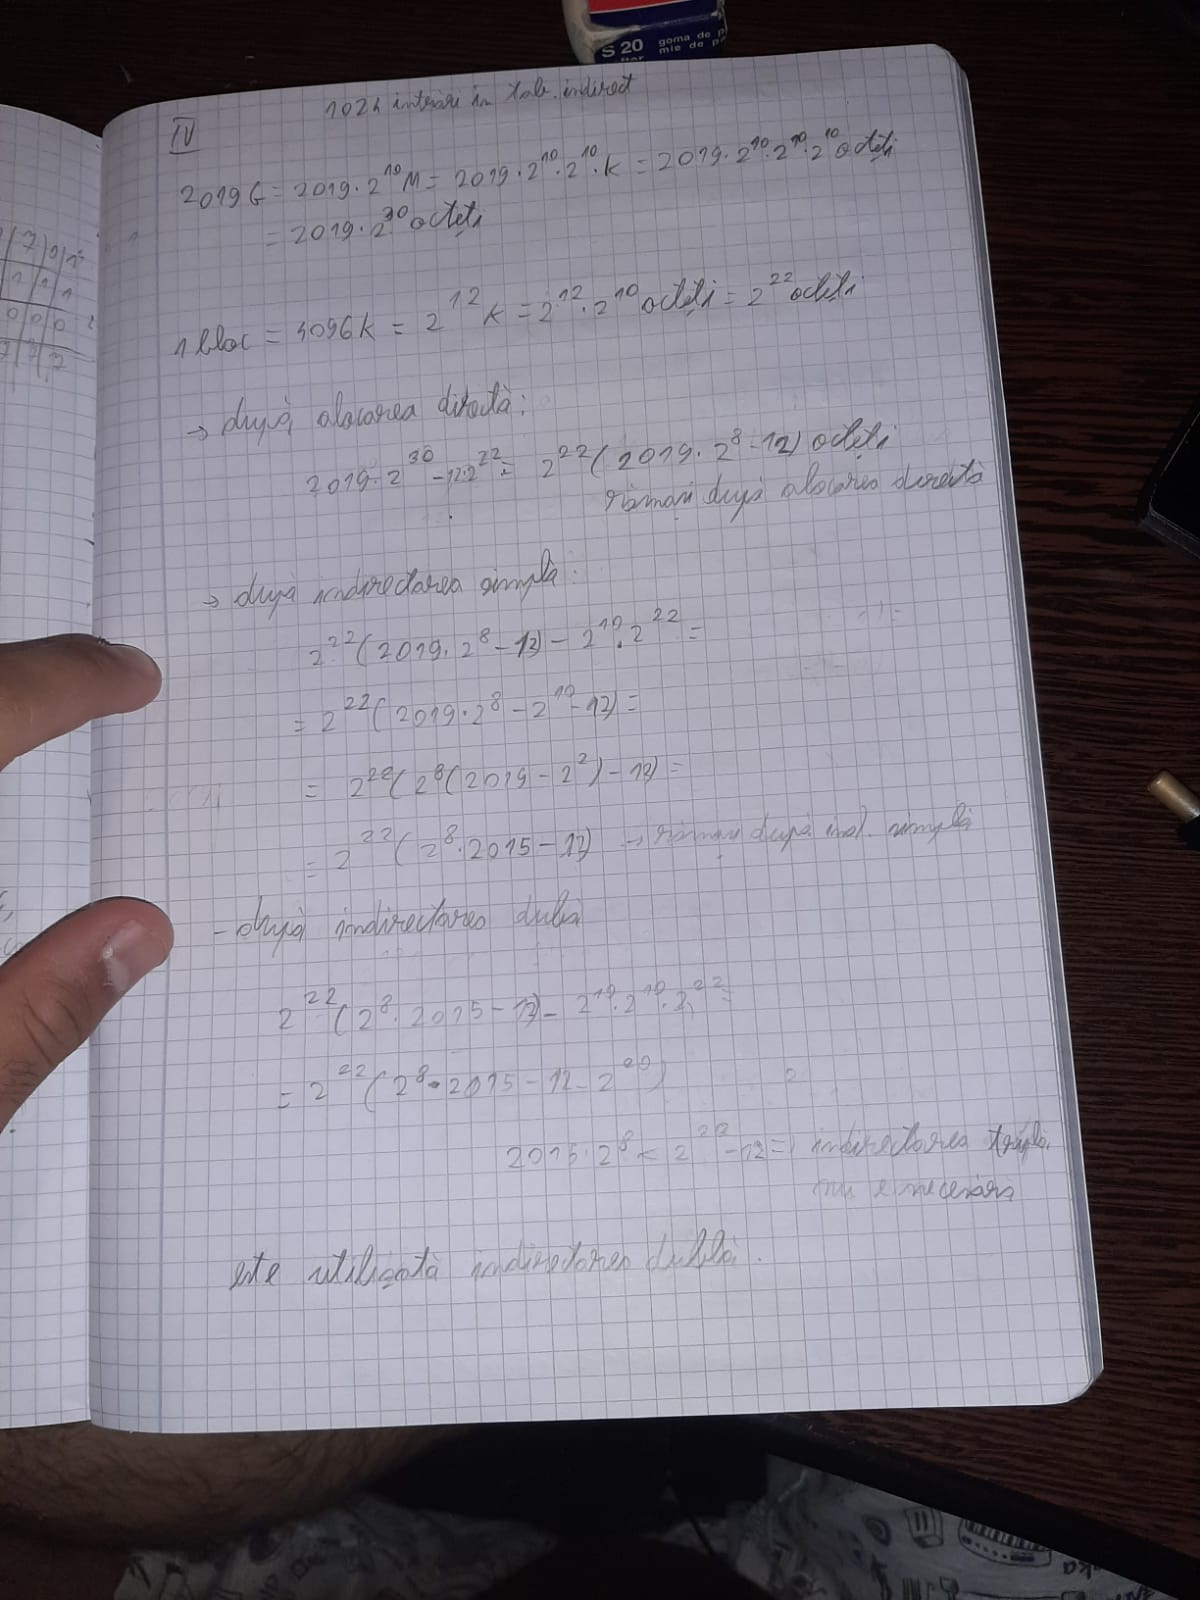 S 20 goma de p
mie de pa
1024 intrări în tab. indirect
IV
2019 G = 2019 · 2^10 M = 2019 · 2^10 · 2^10 · K = 2019 · 2^10 · 2^10 · 2^10 octeți
= 2019 · 2^30 octeți
1 bloc = 4096 K = 2^12 K = 2^12 · 2^10 octeți = 2^22 octeți
→ după alocarea directă:
2019 · 2^30 - 12 · 2^22 = 2^22 (2019 · 2^8 - 12) octeți
rămași după alocarea directă
→ după indirectarea simplă:
2^22 (2019 · 2^8 - 12) - 2^10 · 2^22 =
= 2^22 (2019 · 2^8 - 2^10 - 12) =
= 2^22 (2^8 (2019 - 2^2) - 12) =
= 2^22 (2^8 · 2015 - 12) → rămași după ind. simplă
- după indirectarea dublă
2^22 (2^8 · 2015 - 12) - 2^10 · 2^10 · 2^22 =
= 2^22 (2^8 · 2015 - 12 - 2^20)
2015 · 2^8 < 2^20 - 12 => indirectarea triplă
nu e necesară
este utilizată indirectarea dublă.